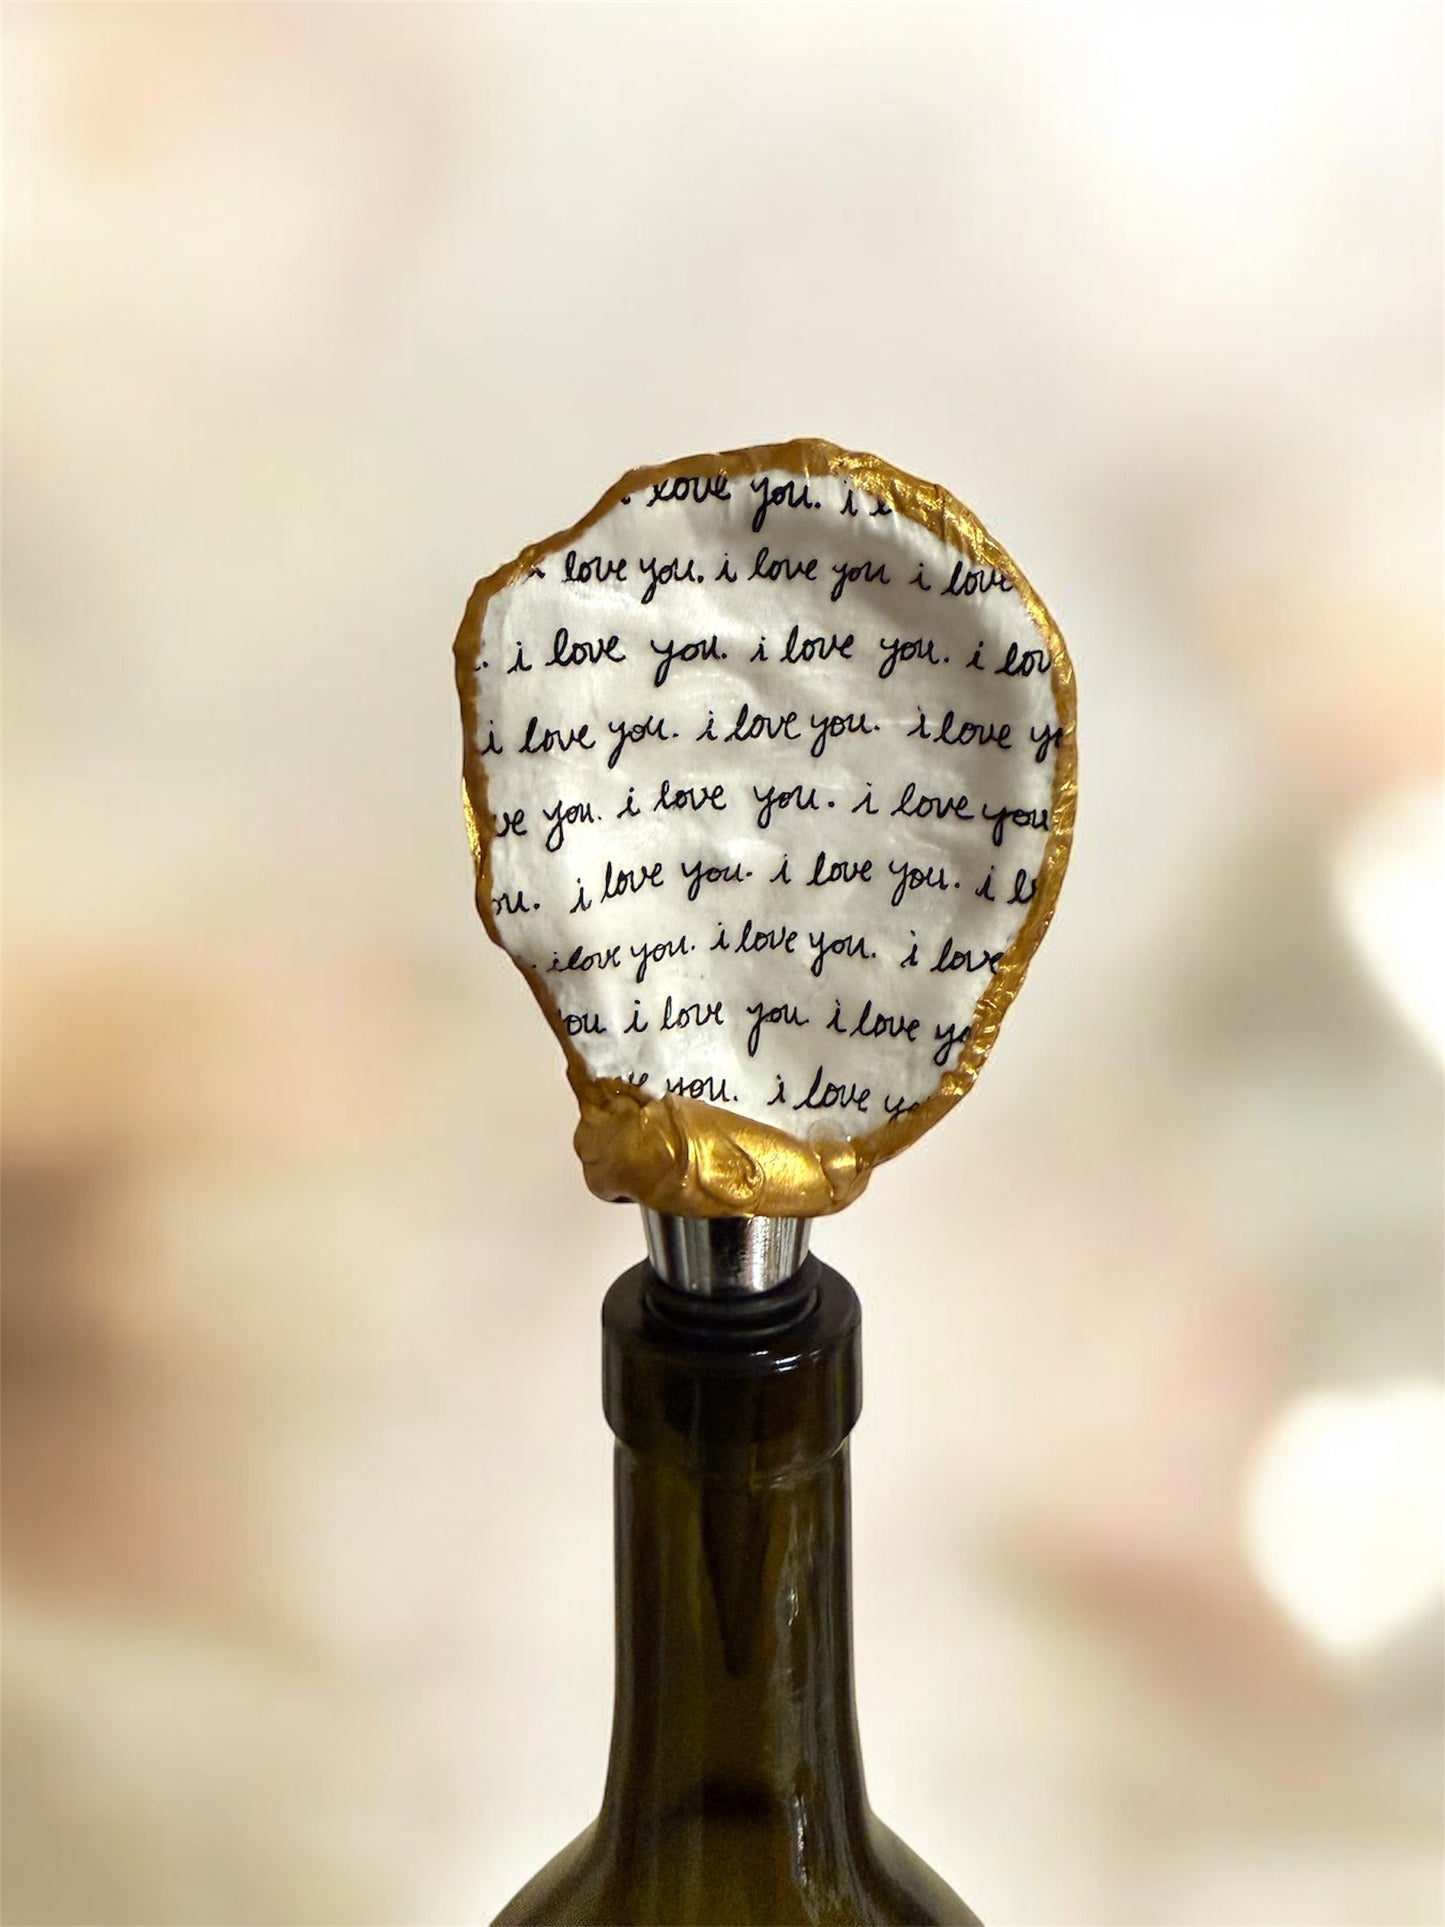 love you. i
love you. i love you i love
i love you. i love you. i lov
i love you. i love you. i love
you. i love you. i love you
i love you. i love you. i
i love you. i love you. i love
you i love you i love
you. i love